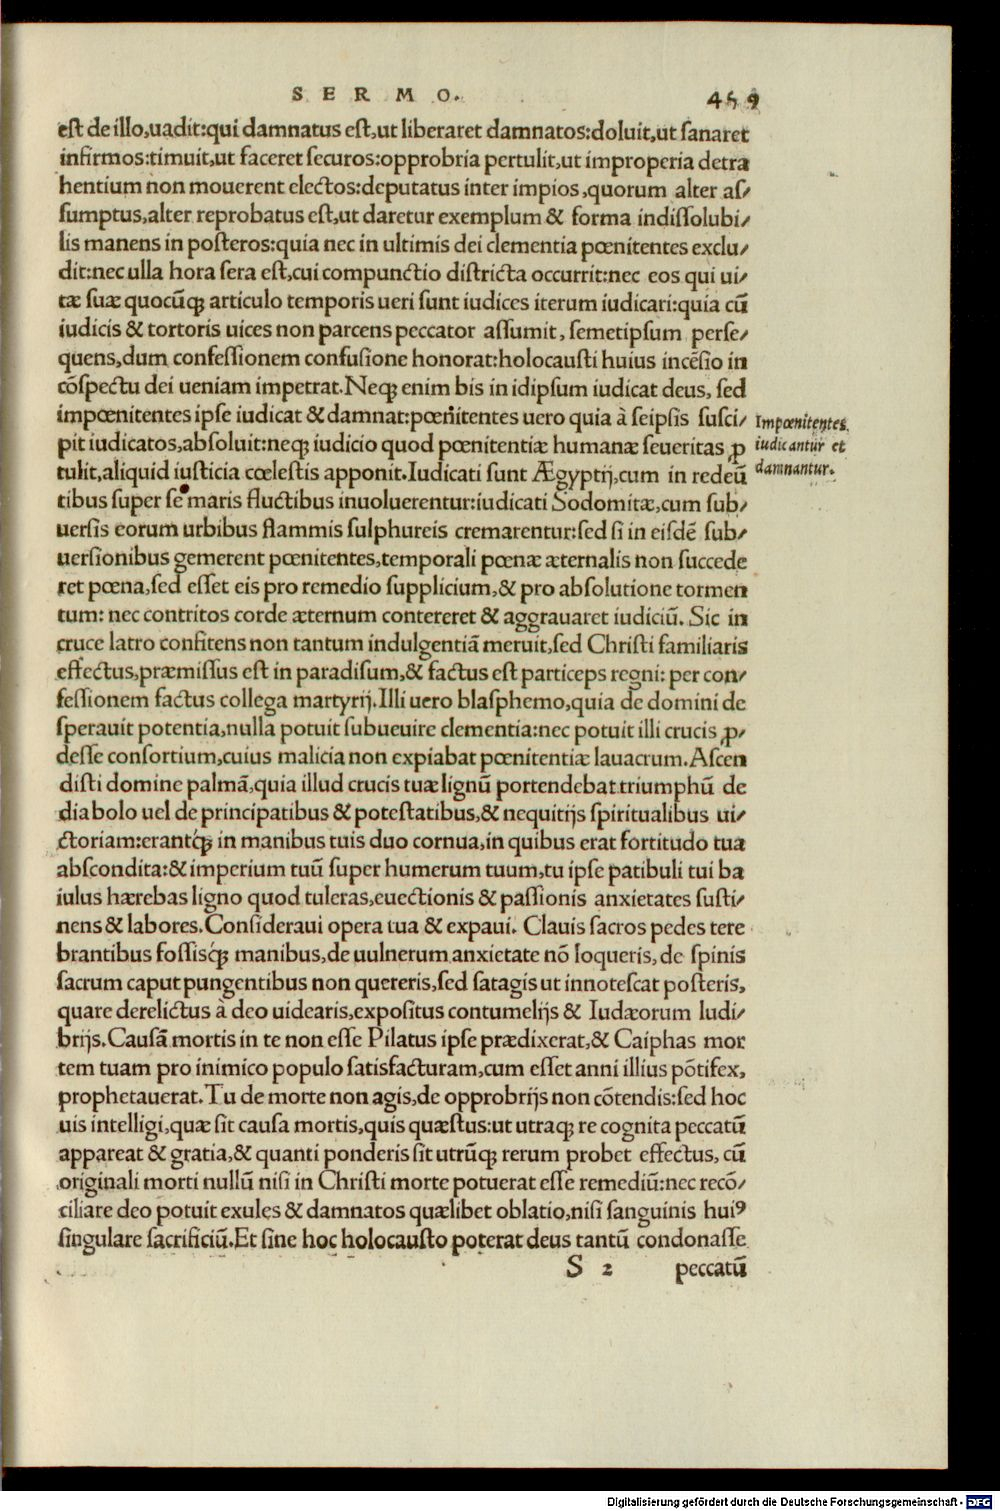 SERMO. 459
est de illo,uadit:qui damnatus est,ut liberaret damnatos:doluit,ut sanaret
infirmos:timuit,ut faceret securos:opprobria pertulit,ut improperia detra
hentium non mouerent electos:deputatus inter impios,quorum alter as/
sumptus,alter reprobatus est,ut daretur exemplum & forma indissolubi/
lis manens in posteros:quia nec in ultimis dei clementia pœnitentes exclu/
dit:nec ulla hora sera est,cui compunctio districta occurrit:nec eos qui ui/
tæ suæ quocũq; articulo temporis ueri sunt iudices iterum iudicari:quia cũ
iudicis & tortoris uices non parcens peccator assumit, semetipsum perse/
quens,dum confessionem confusione honorat:holocausti huius incẽsio in
cõspectu dei ueniam impetrat.Neq; enim bis in idipsum iudicat deus, sed
impœnitentes ipse iudicat & damnat:pœnitentes uero quia à seipsis susci/
pit iudicatos,absoluit:neq; iudicio quod pœnitentiæ humanæ seueritas ꝓ
tulit,aliquid iusticia cœlestis apponit.Iudicati sunt Ægyptij,cum in redeũ
tibus super se maris fluctibus inuoluerentur:iudicati Sodomitæ,cum sub/
uersis eorum urbibus flammis sulphureis cremarentur:sed si in eisdẽ sub/
uersionibus gemerent pœnitentes,temporali pœnæ æternalis non succede
ret pœna,sed esset eis pro remedio supplicium,& pro absolutione tormen
tum: nec contritos corde æternum contereret & aggrauaret iudiciũ. Sic in
cruce latro confitens non tantum indulgentiã meruit,sed Christi familiaris
effectus,præmissus est in paradisum,& factus est particeps regni: per con/
fessionem factus collega martyrij.Illi uero blasphemo,quia de domini de
sperauit potentia,nulla potuit subueuire clementia:nec potuit illi crucis ꝓ/
desse consortium,cuius malicia non expiabat pœnitentiæ lauacrum.Ascen
disti domine palmã,quia illud crucis tuæ lignũ portendebat triumphũ de
diabolo uel de principatibus & potestatibus,& nequitijs spiritualibus ui/
ctoriam:erantq́; in manibus tuis duo cornua,in quibus erat fortitudo tua
abscondita:& imperium tuũ super humerum tuum,tu ipse patibuli tui ba
iulus hærebas ligno quod tuleras,euectionis & passionis anxietates susti/
nens & labores.Consideraui opera tua & expaui. Clauis sacros pedes tere
brantibus fossisq́; manibus,de uulnerum anxietate nõ loqueris, de spinis
sacrum caput pungentibus non quereris,sed satagis ut innotescat posteris,
quare derelictus à deo uidearis,expositus contumelijs & Iudæorum ludi/
brijs.Causã mortis in te non esse Pilatus ipse prædixerat,& Caiphas mor
tem tuam pro inimico populo satisfacturam,cum esset anni illius põtifex,
prophetauerat.Tu de morte non agis,de opprobrijs non cõtendis:sed hoc
uis intelligi,quæ sit causa mortis,quis quæstus:ut utraq; re cognita peccatũ
appareat & gratia,& quanti ponderis sit utrũq; rerum probet effectus, cũ
originali morti nullũ nisi in Christi morte potuerat esse remediũ:nec recõ/
ciliare deo potuit exules & damnatos quælibet oblatio,nisi sanguinis huiꝰ
singulare sacrificiũ.Et sine hoc holocausto poterat deus tantũ condonasse
S 2 peccatũ
Impœnitentes
iudicantur et
damnantur.
Digitalisierung gefördert durch die Deutsche Forschungsgemeinschaft - DFG